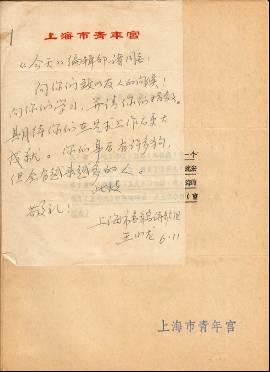 上海市青年宫
《今天》编辑部诸同志:
向你们致以友人的问候!
向你们学习,并请你们
期待你们在艺术工作有更大
成就。你们的身后有许多狗,
但会有越来越多的人。
此致
敬礼!
上海市青年宫诗歌组
王小龙
6.11
一个
上海市青年宫